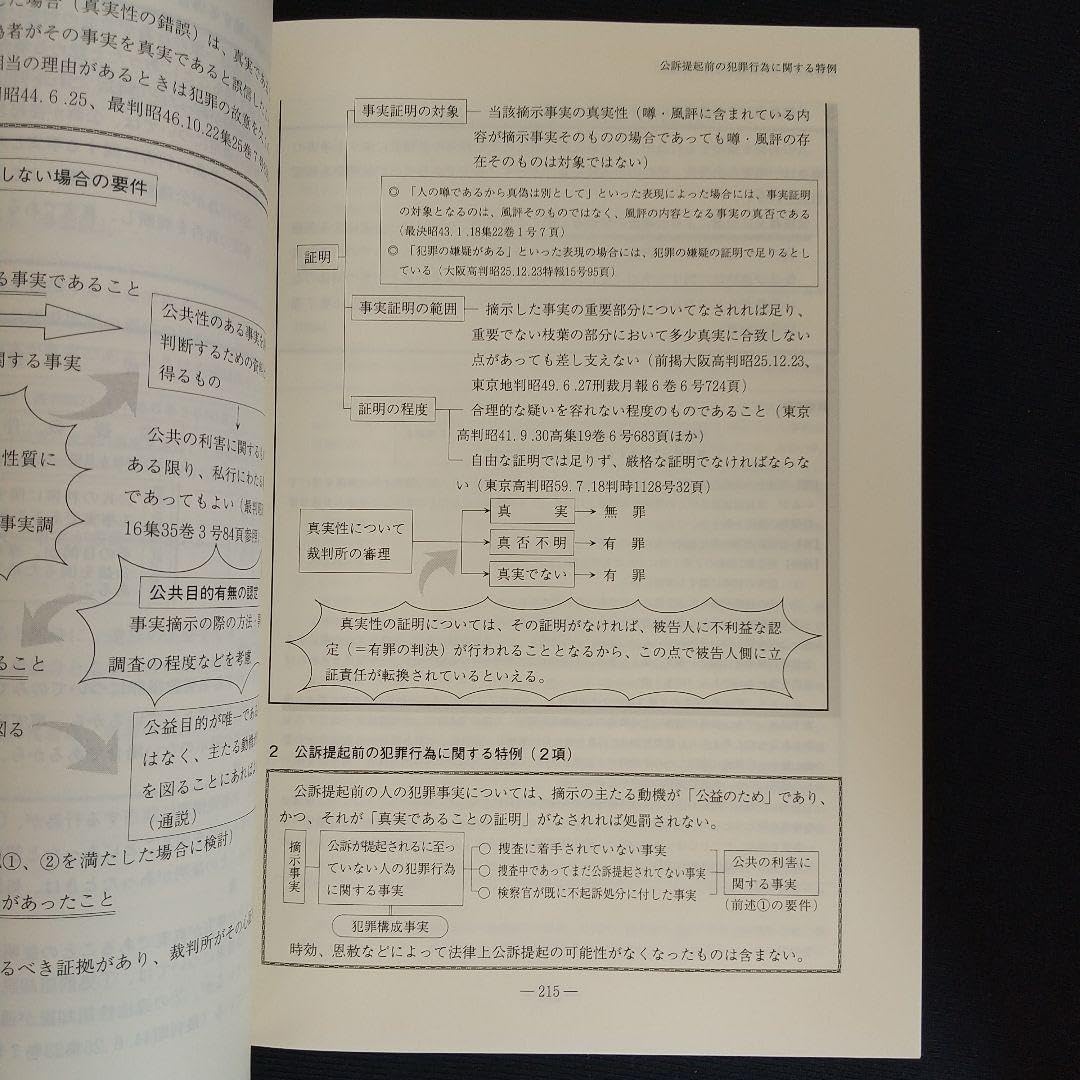 た場合（真実性の錯誤）は、真実であ
為者がその事実を真実であると誤信し
相当の理由があるときは犯罪の故意
昭44.6.25、最判昭46.10.22集25巻7
しない場合の要件
る事実であること
公共性のある事実
判断するための
得るもの
関する事実
公共の利害に関する
ある限り、私行にわた
であってもよい（最判
16集35巻3号84頁参照
性質に
事実調
公共目的有無の認定
事実摘示の際の方法
調査の程度などを考慮
ること
図る
公益目的が唯一であ
はなく、主たる動機
を図ることにあれば
（通説）
①、②を満たした場合に検討）
があったこと
るべき証拠があり、裁判所がその心
公訴提起前の犯罪行為に関する特例
事実証明の対象
当該摘示事実の真実性（噂・風評に含まれている内
容が摘示事実そのものの場合であっても噂・風評の存
在そのものは対象ではない）
◎ 「人の噂であるから真偽は別として」といった表現によった場合には、事実証明
の対象となるのは、風評そのものではなく、風評の内容となる事実の真否である
（最決昭43.1.18集22巻1号7頁）
◎ 「犯罪の嫌疑がある」といった表現の場合には、犯罪の嫌疑の証明で足りるとし
ている（大阪高判昭25.12.23特報15号95頁）
証明
事実証明の範囲
摘示した事実の重要部分についてなされれば足り、
重要でない枝葉の部分において多少真実に合致しない
点があっても差し支えない（前掲大阪高判昭25.12.23、
東京地判昭49.6.27刑裁月報6巻6号724頁）
証明の程度
合理的な疑いを容れない程度のものであること（東京
高判昭41.9.30高集19巻6号683頁ほか）
自由な証明では足りず、厳格な証明でなければならな
い（東京高判昭59.7.18判時1128号32頁）
真実性について
裁判所の審理
真　実 → 無　罪
真否不明 → 有　罪
真実でない → 有　罪
真実性の証明については、その証明がなければ、被告人に不利益な認
定（＝有罪の判決）が行われることとなるから、この点で被告人側に立
証責任が転換されているといえる。
2　公訴提起前の犯罪行為に関する特例（2項）
公訴提起前の人の犯罪事実については、摘示の主たる動機が「公益のため」であり、
かつ、それが「真実であることの証明」がなされれば処罰されない。
摘示事実
公訴が提起されるに至っ
ていない人の犯罪行為
に関する事実
犯罪構成事実
○ 捜査に着手されていない事実
○ 捜査中であってまだ公訴提起されてない事実
○ 検察官が既に不起訴処分に付した事実
公共の利害に
関する事実
（前述①の要件）
時効、恩赦などによって法律上公訴提起の可能性がなくなったものは含まない。
―215―